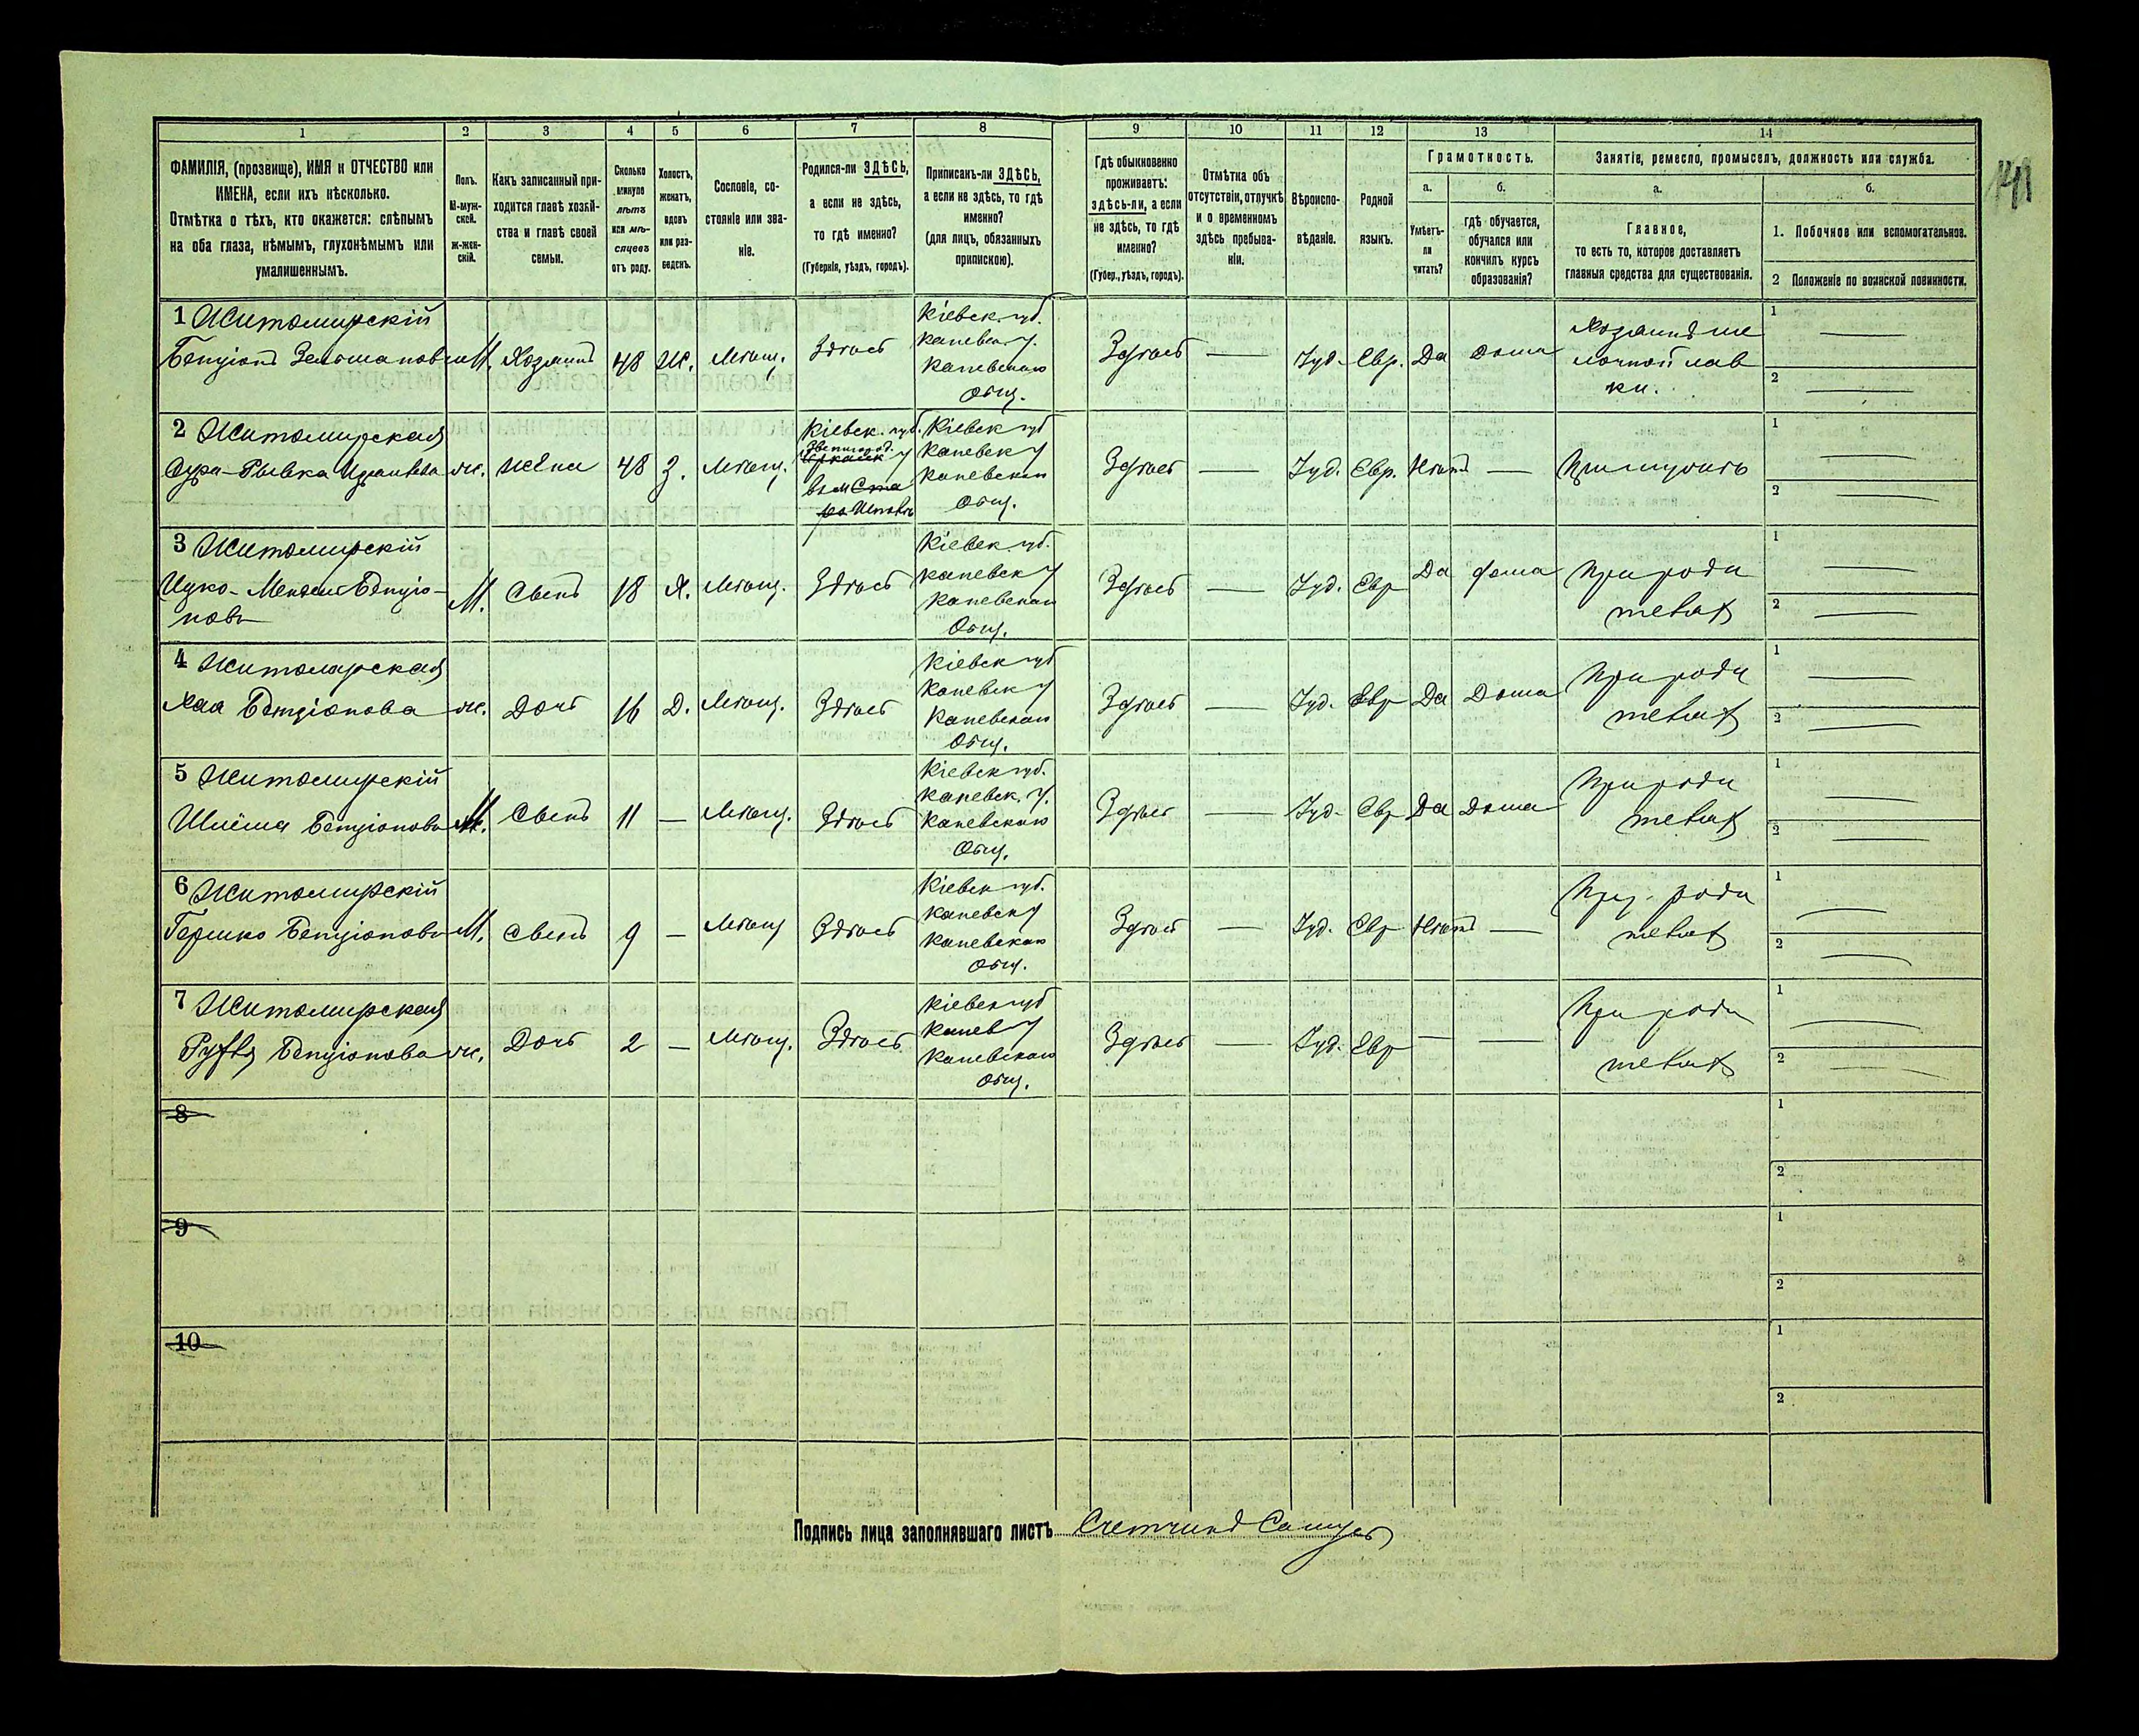 1 2 3 4 5 6 7 8 9 10 11 12 13 14
ФАМИЛІЯ, (прозвище), ИМЯ и ОТЧЕСТВО или
ИМЕНА, если ихъ нѣсколько.
Отмѣтка о тѣхъ, кто окажется: слѣпымъ
на оба глаза, нѣмымъ, глухонѣмымъ или
умалишеннымъ.
Полъ.
М-муж-
ской.
ж-жен-
скій.
Какъ записанный при-
ходится главѣ хозяй-
ства и главѣ своей
семьи.
Сколько
минуло
лѣтъ
или мѣ-
сяцевъ
отъ роду.
Холостъ,
женатъ,
вдовъ
или раз-
веденъ.
Сословіе, со-
стояніе или зва-
ніе.
Родился-ли ЗДѢСЬ,
а если не здѣсь,
то гдѣ именно?
(Губернія, уѣздъ, городъ).
Приписанъ-ли ЗДѢСЬ,
а если не здѣсь, то гдѣ
именно?
(для лицъ, обязанныхъ
припискою).
Гдѣ обыкновенно
проживаетъ:
здѣсь-ли, а если
не здѣсь, то гдѣ
именно?
(Губер., уѣздъ, городъ).
Отмѣтка объ
отсутствіи, отлучкѣ
и о временномъ
здѣсь пребыва-
ніи.
Вѣроиспо-
вѣданіе.
Родной
языкъ.
Грамотность.
а.
Умѣетъ-
ли
читать?
б.
гдѣ обучается,
обучался или
кончилъ курсъ
образованія?
Занятіе, ремесло, промыселъ, должность или служба.
а.
Главное,
то есть то, которое доставляетъ
главныя средства для существованія.
б.
1. Побочное или вспомогательное.
2 Положеніе по воинской повинности.
1 Житомирскій
Бенціонъ Зельманов М. Хозяинъ 48 Ж. Мѣщ. Здѣсь
Кіевск. губ.
Каневск. у.
Каневскаго
Общ.
Здѣсь — Іуд. Евр. Да дома
Хозяинъ ме
лочной лав
ки.
1 —
2 —
2 Житомирская
Сура-Рывка ж. Жена 48 З. Мѣщ.
Кіевск. губ.
Звенигород.
у
Кіевск губ
Каневск у
Каневскаго
Общ.
Здѣсь — Іуд. Евр. Нѣтъ — При мужѣ
1 —
2 —
3 Житомирскій
Ицко-Мендель Бенціо-
новъ
М. Сынъ 18 Х. Мѣщ. Здѣсь
Кіевск. губ.
Каневск у
Каневскаго
Общ.
Здѣсь — Іуд. Евр Да дома
При роди
теляхъ
1 —
2 —
4 Житомирская
Хая Бенціонова ж. Дочь 16 Д. Мѣщ. Здѣсь
Кіевск губ
Каневск у
Каневскаго
Общ.
Здѣсь — Іуд. Евр Да Дома
При роди
теляхъ
1 —
2 —
5 Житомирскій
Шлёма Бенціоновъ М. Сынъ 11 — Мѣщ. Здѣсь
Кіевск губ.
Каневск. у.
Каневскаго
Общ.
Здѣсь — Іуд. Евр Да Дома
При роди
теляхъ
1 —
2 —
6 Житомирскій
Гершко Бенціоновъ М. Сынъ 9 — Мѣщ Здѣсь
Кіевск губ.
Каневск у
Каневскаго
Общ.
Здѣсь — Іуд. Евр Нѣтъ —
При роди
теляхъ
1 —
2 —
7 Житомирская
Руфля Бенціонова ж. Дочь 2 — Мѣщ. Здѣсь
Кіевск губ
Канев у
Каневскаго
Общ.
Здѣсь — Іуд. Евр — —
При роди
теляхъ
1 —
2 —
8
1
2
9
1
2
10
1
2
Подпись лица заполнявшаго листъ Счетчикъ